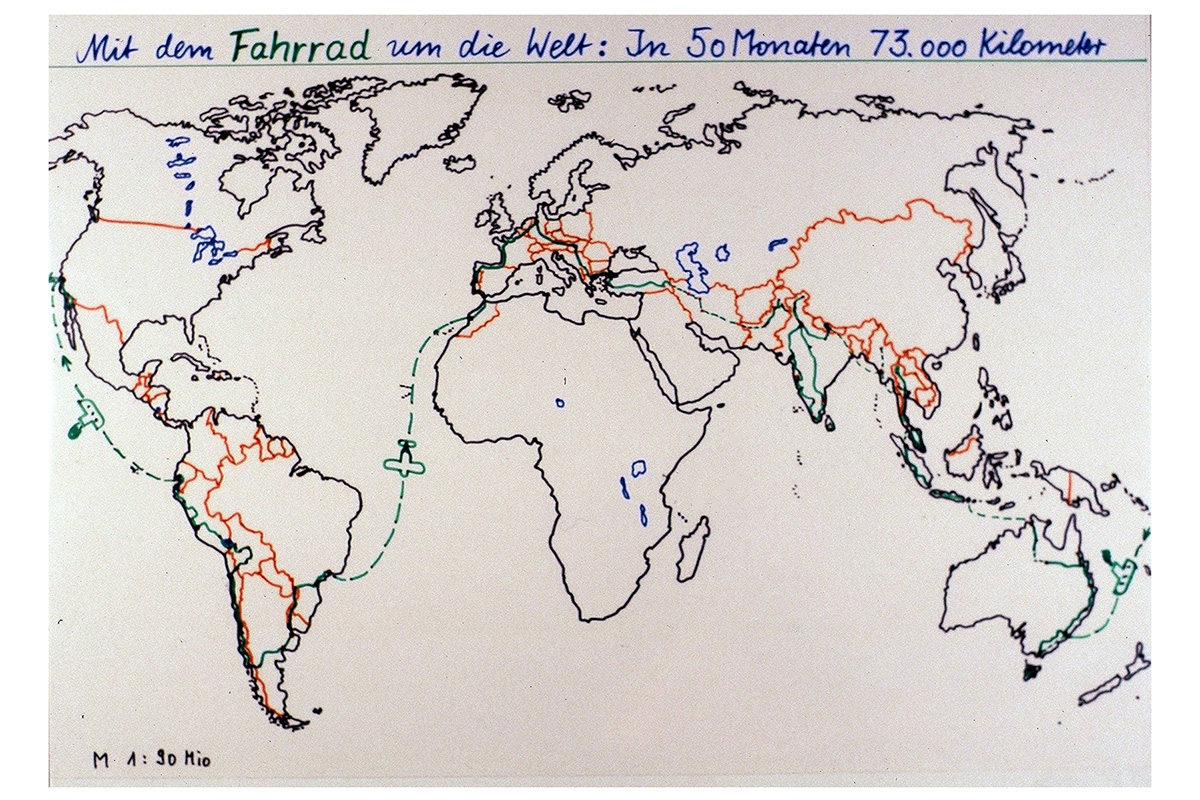 Mit dem Fahrrad um die Welt: In 50 Monaten 73.000 Kilometer
M 1:90 Mio